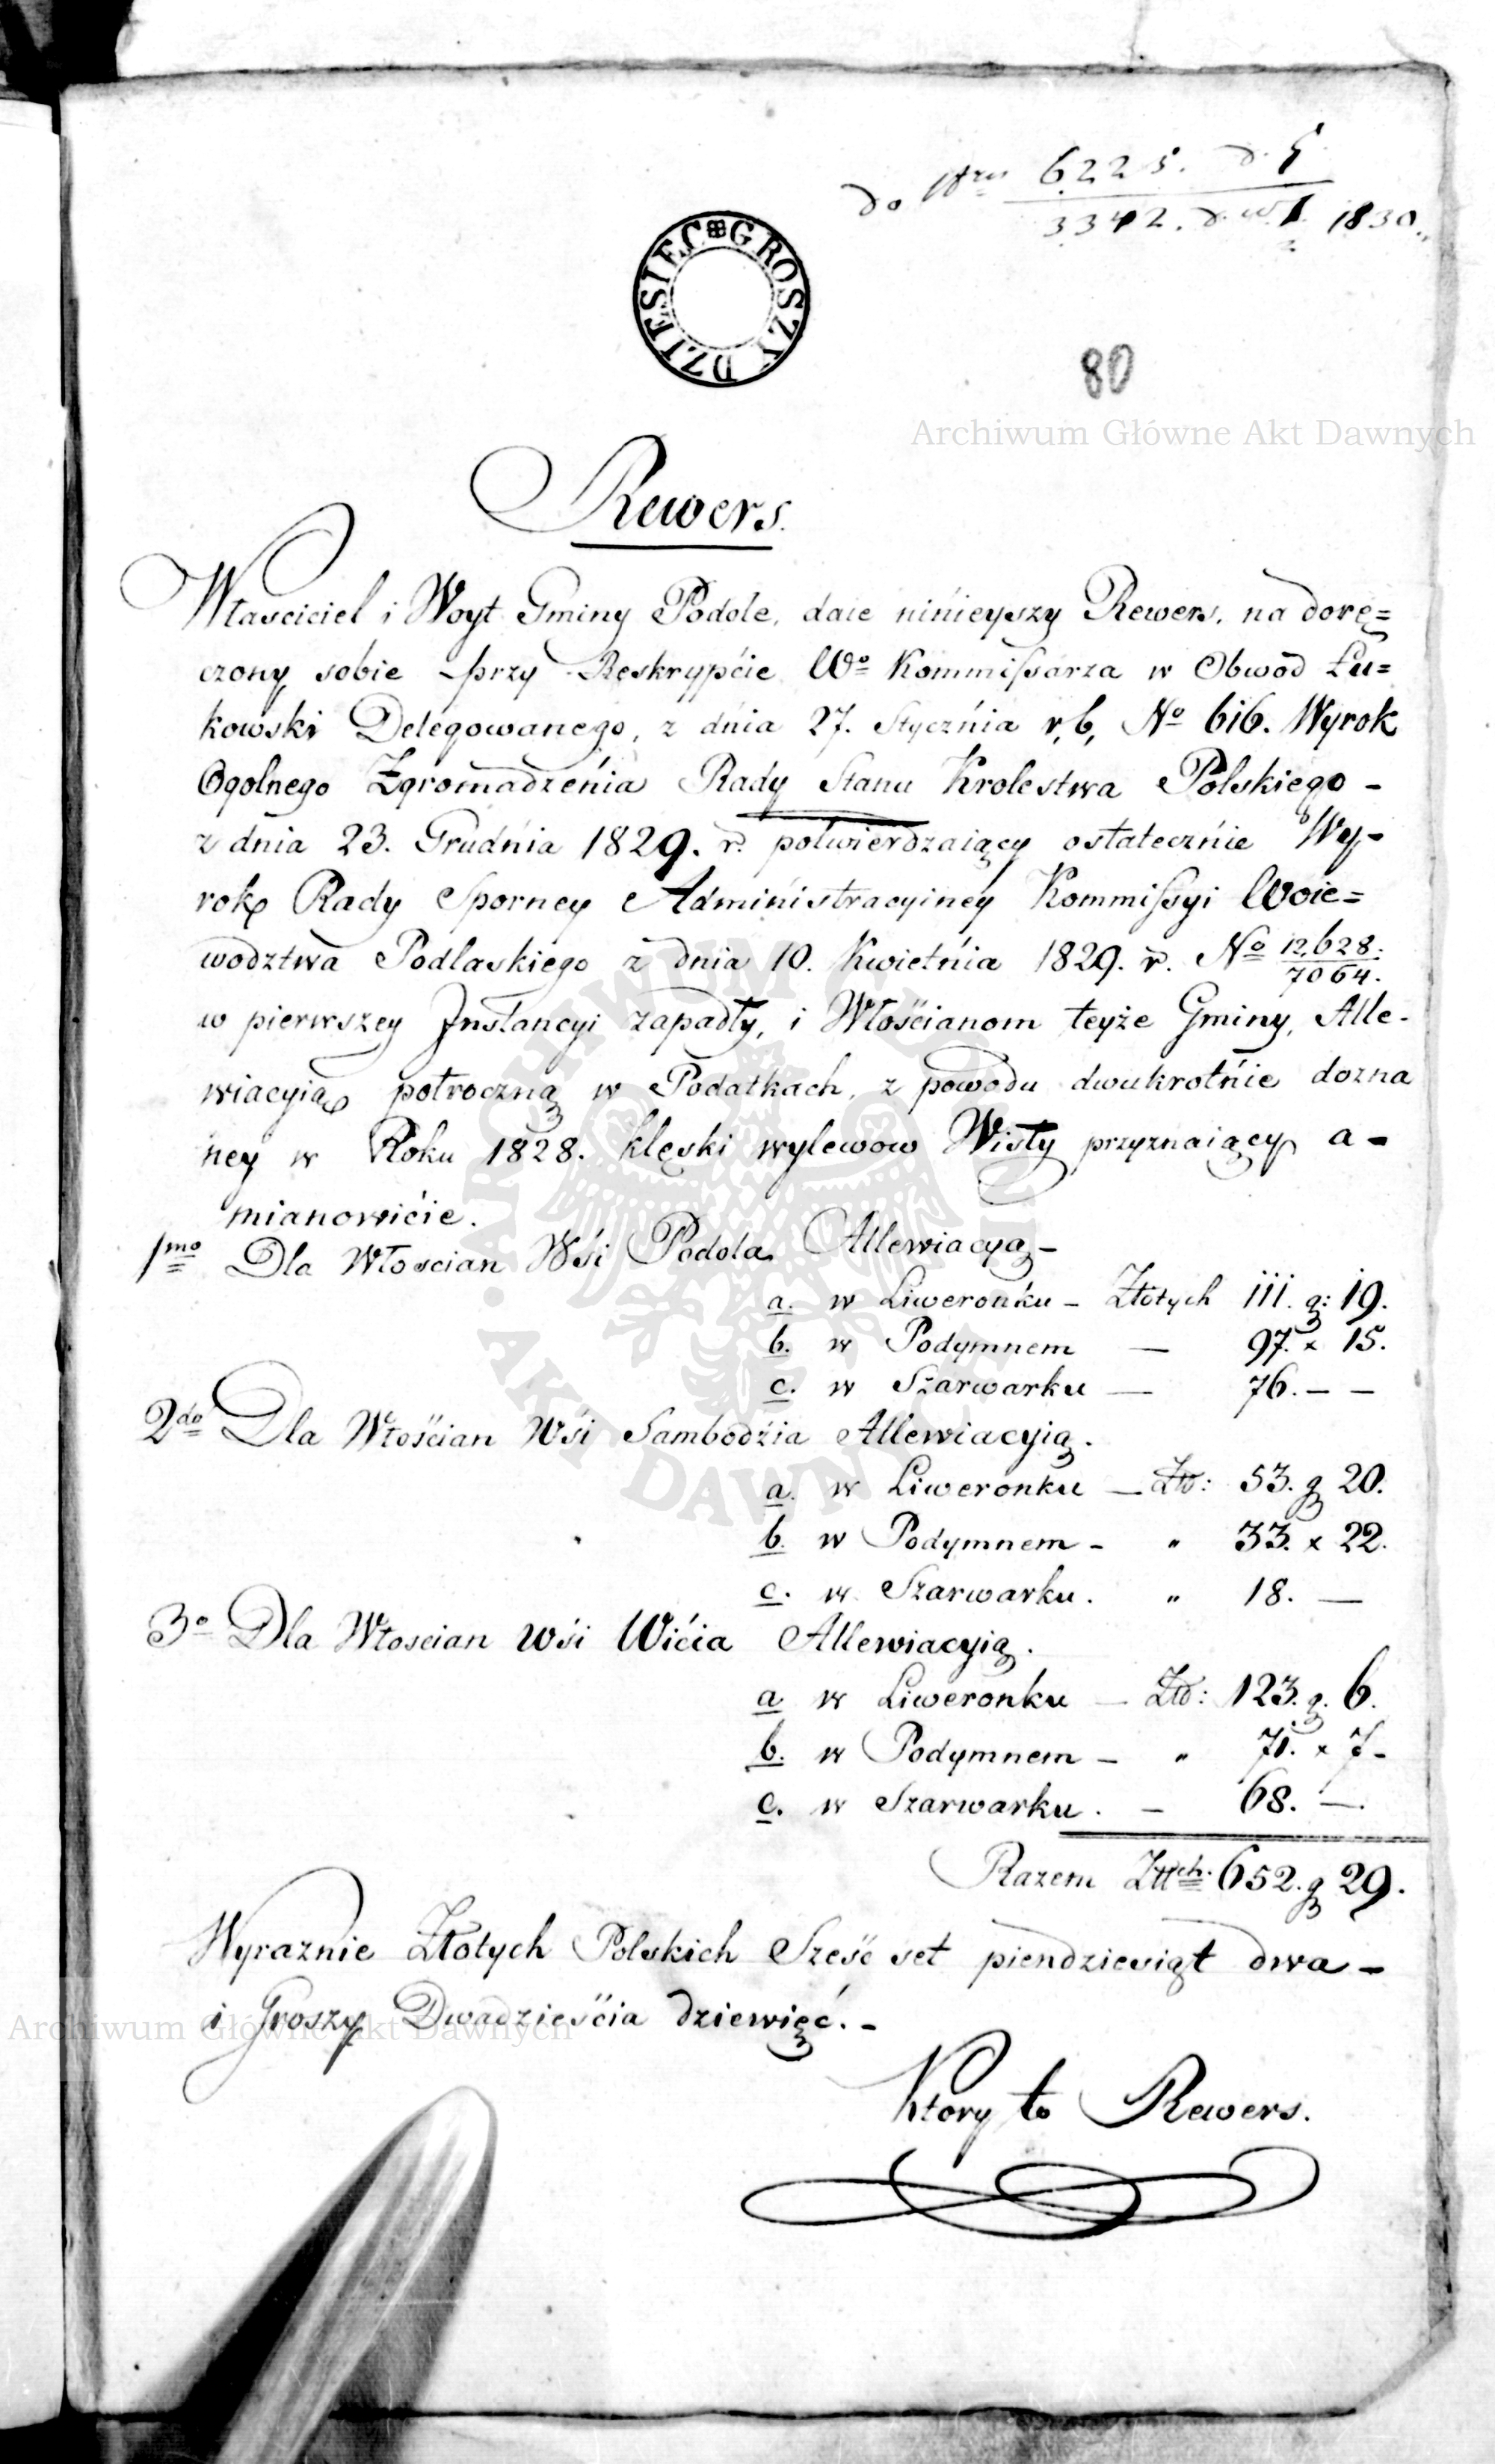 do Nru 6225. d. 5
3342. d. w. 1. 1830.
DZIESIEC GROSZY
80
Archiwum Główne Akt Dawnych
Rewers.
Własciciel i Woyt Gminy Podole, daie ninieyszy Rewers, na dorę=
czony sobie przy Reskrypćie Wo Kommissarza w Obwod Łu=
kowski Delegowanego, z dńia 27. Styczńia r, b, No 616. Wyrok
Ogolnego Zgromadzeńia Rady Stanu Krolestwa Polskiego -
z dnia 23. Grudńia 1829. r. potwierdzaiący ostatecznie Wy-
rok Rady Sporney Administracyiney Kommissyi Woie=
wodztwa Podlaskiego z dnia 10. Kwietńia 1829. r. No 12,628.
7064.
w pierwszey Instancyi zapadły, i Włościanom teyże Gminy, Alle-
wiacyią połroczną w Podatkach, z powodu dwukrotńie dozna
ney w Roku 1828. klęski wylewow Wisły przyznaiący a -
mianowićie.
1mo Dla Włoscian Wśi Podola Allewiacyą -
a. w Liweronku - Złotych 111. g: 19.
b. w Podymnem — 97. x 15.
c. w Szarwarku — 76. - -
2do Dla Włościan Wśi Sambodźia Allewiacyią.
a. w Liweronku — Złt: 53. g 20.
b. w Podymnem - " 33. x 22.
c. w Szarwarku. " 18. —
3o Dla Włoscian Wśi Wićia Allewiacyią.
a w Liweronku — Złt: 123. g. 6.
b. w Podymnem - " 71. x 7 -
c. w Szarwarku. - 68. —
Razem Złtch. 652. g 29.
Wyraznie Złotych Polskich Sześć set piendziesiąt dwa -
i Groszy Dwadzieścia dziewięć. -
Archiwum Główne Akt Dawnych
Ktory to Rewers.
ARCHIWUM GŁÓWNE AKT DAWNYCH